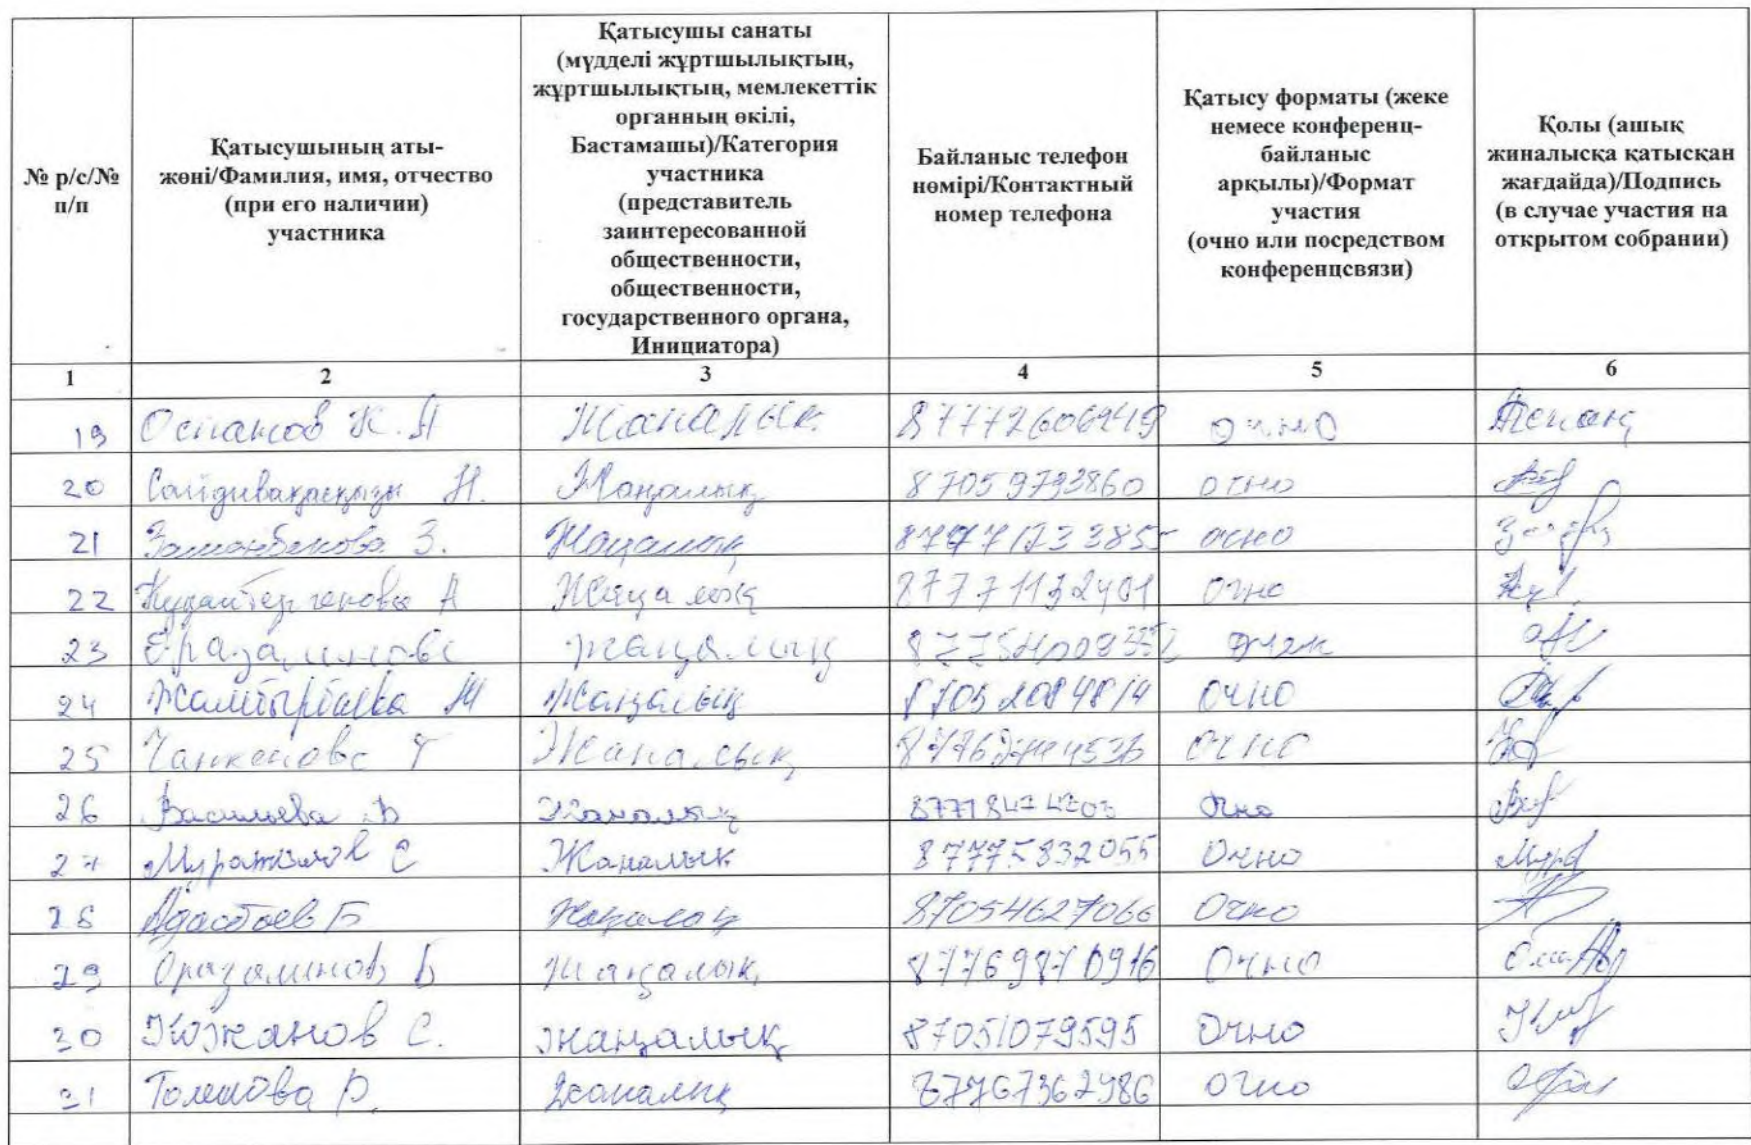 № р/с/№ п/п
Қатысушының аты-
жөні/Фамилия, имя, отчество
(при его наличии)
участника
Қатысушы санаты
(мүдделі жұртшылықтың,
жұртшылықтың, мемлекеттік
органның өкілі,
Бастамашы)/Категория
участника
(представитель
заинтересованной
общественности,
общественности,
государственного органа,
Инициатора)
Байланыс телефон
нөмірі/Контактный
номер телефона
Қатысу форматы (жеке
немесе конференц-
байланыс
арқылы)/Формат
участия
(очно или посредством
конференцсвязи)
Қолы (ашық
жиналысқа қатысқан
жағдайда)/Подпись
(в случае участия на
открытом собрании)
1 2 3 4 5 6
19 Оспанов К. А Жаналык очно
20 Н. Жаңалық 87059793860 очно
21 Заманбекова З. Жаңалық очно
22 Кудайтергенова А Жаңалық 87771132401 очно
23 Оразалинова жаңалық
24 Жамбырбаева М Жаңалық 87052084814 очно
25 Чанкенова Т Жаналық очно
26 Васильева В Жаналық очно
27 С Жаналык 87775832055 очно
28 Адасбаев Б Жаңалық 87054627066 очно
29 Оразалинов Б жаңалық 87769870916 очно
30 Кожанов С. жаңалық 87051079595 очно
31 Р. Жаналық 87767362986 очно